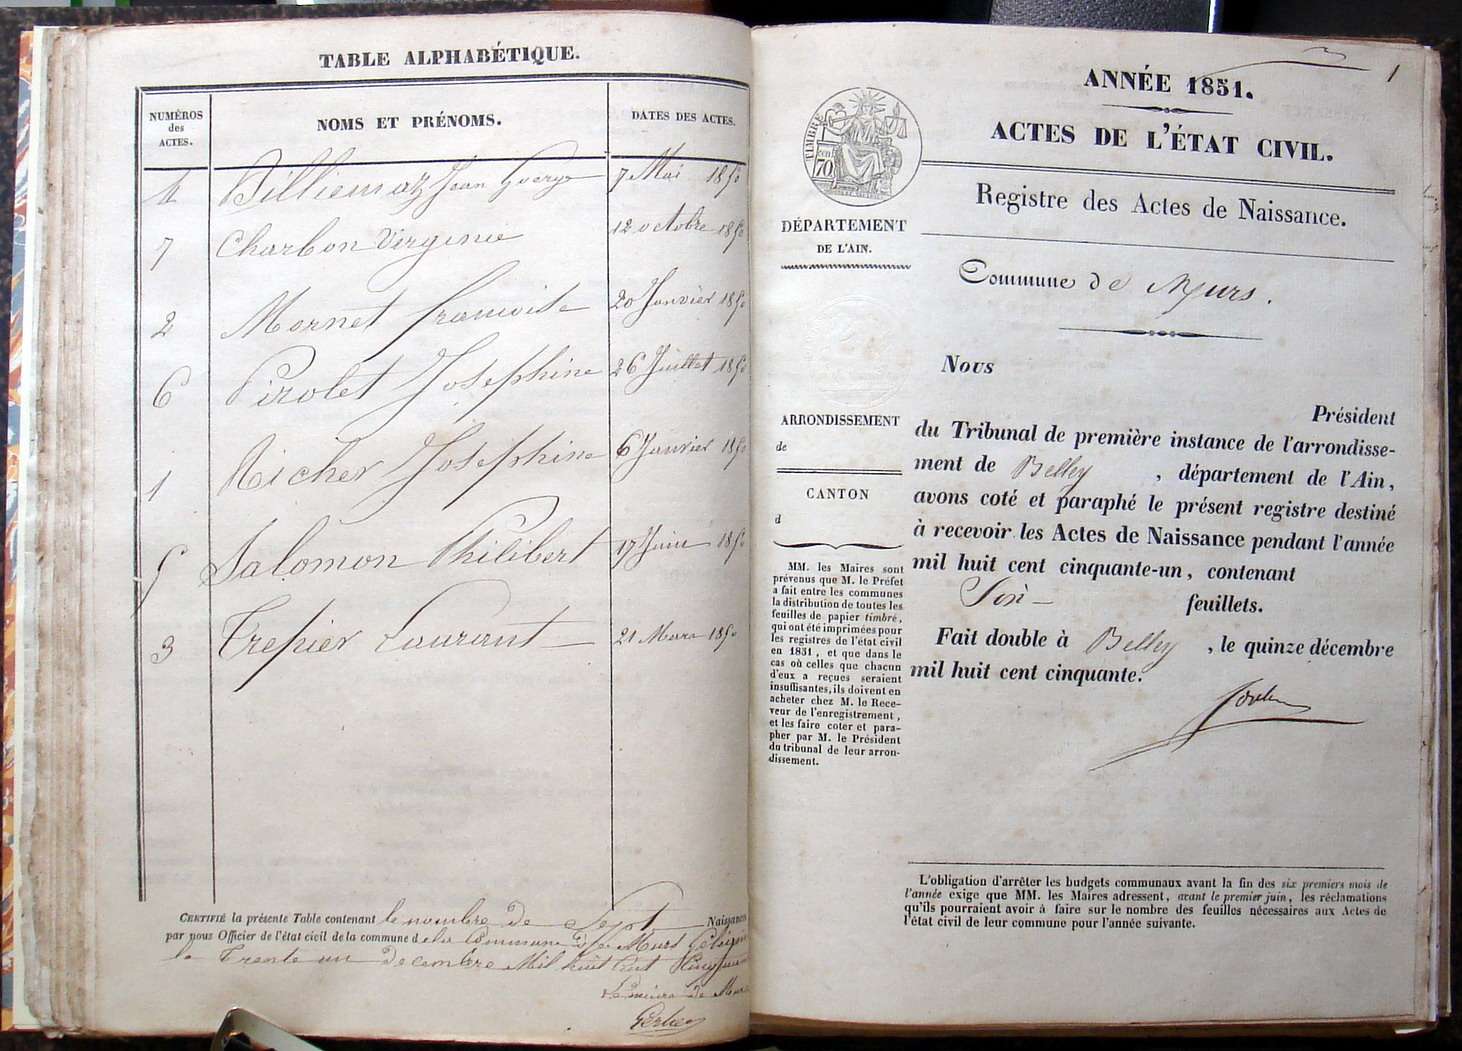 TABLE ALPHABÉTIQUE.
NUMÉROS des ACTES.
NOMS ET PRÉNOMS.
DATES DES ACTES.
4 Billiemaz Jean George 7 Mai 1850
7 Charbon Virginie 12 octobre 1850
2 Mornet francoise 20 Janvier 1850
6 Pirolet Josephine 26 Juillet 1850
1 Richer Josephine 6 Janvier 1850
5 Salomon Philibert 17 Juin 1850
3 Trepier Laurant 21 Mars 1850
CERTIFIÉ la présente Table contenant le nombre de Sept Naissances
par nous Officier de l'état civil de la commune d de Murs
le Trente un decembre Mil huit Cent Cinquante
de Murs
ANNÉE 1851. 1
ACTES DE L'ÉTAT CIVIL.
Registre des Actes de Naissance.
Commune de Murs.
TIMBRE
70
DÉPARTEMENT
DE L'AIN.
ARRONDISSEMENT
de
CANTON
d
MM. les Maires sont
prévenus que M. le Préfet
a fait entre les communes
la distribution de toutes les
feuilles de papier timbré,
qui ont été imprimées pour
les registres de l'état civil
en 1851, et que dans le
cas où celles que chacun
d'eux a reçues seraient
insuffisantes, ils doivent en
acheter chez M. le Rece-
veur de l'enregistrement,
et les faire coter et para-
pher par M. le Président
du tribunal de leur arron-
dissement.
Nous
Président
du Tribunal de première instance de l'arrondisse-
ment de Belley, département de l'Ain,
avons coté et paraphé le présent registre destiné
à recevoir les Actes de Naissance pendant l'année
mil huit cent cinquante-un, contenant
Six feuillets.
Fait double à Belley, le quinze décembre
mil huit cent cinquante.
L'obligation d'arrêter les budgets communaux avant la fin des six premiers mois de
l'année exige que MM. les Maires adressent, avant le premier juin, les réclamations
qu'ils pourraient avoir à faire sur le nombre des feuilles nécessaires aux Actes de
l'état civil de leur commune pour l'année suivante.